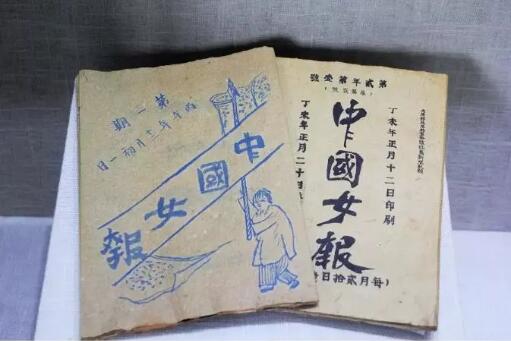 第一期
丙午年十二月初一日
中國女報
第貳年第壹號
丁未年正月十二日印刷
中國女報
丁未年正月二十
(每月貳拾日